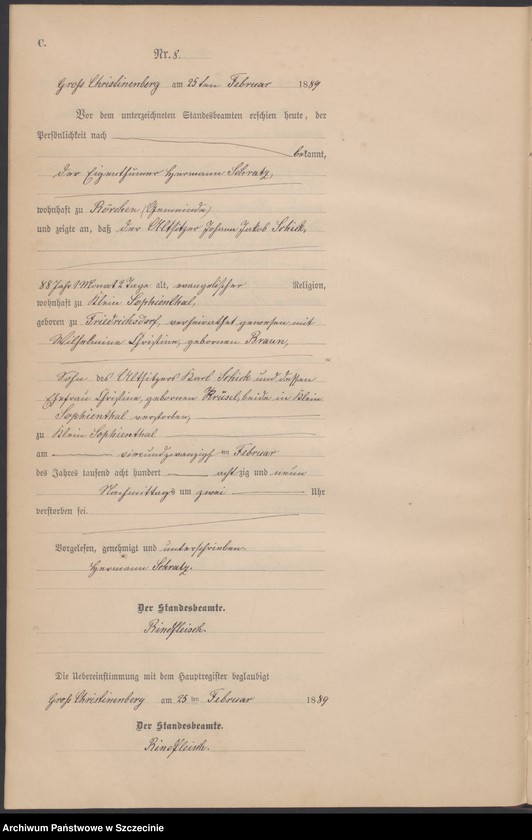 C.
Nr. 8.
Groß Christinenberg am 25ten Februar 1889
Vor dem unterzeichneten Standesbeamten erschien heute, der
Persönlichkeit nach
bekannt,
der Eigenthümer Hermann Schratz,
wohnhaft zu Rörchen (Gemeinde)
und zeigte an, daß der Altsitzer Johann Jakob Schick,
88 Jahr 1 Monat 2 Tage alt, evangelischer Religion,
wohnhaft zu Klein Sophienthal,
geboren zu Friedrichsdorf, verheirathet gewesen mit
Wilhelmine Christine, gebornen Braun,
Sohn des Altsitzers Karl Schick und dessen
Ehefrau Christine, gebornen Krüsel, beide in Klein
Sophienthal verstorben,
zu Klein Sophienthal
am vierundzwanzigsten Februar
des Jahres tausend acht hundert achtzig und neun
Nachmittags um zwei Uhr
verstorben sei.
Vorgelesen, genehmigt und unterschrieben
Hermann Schratz.
Der Standesbeamte.
Rindfleisch.
Die Uebereinstimmung mit dem Hauptregister beglaubigt
Groß Christinenberg am 25ten Februar 1889
Der Standesbeamte.
Rindfleisch.
Archiwum Państwowe w Szczecinie